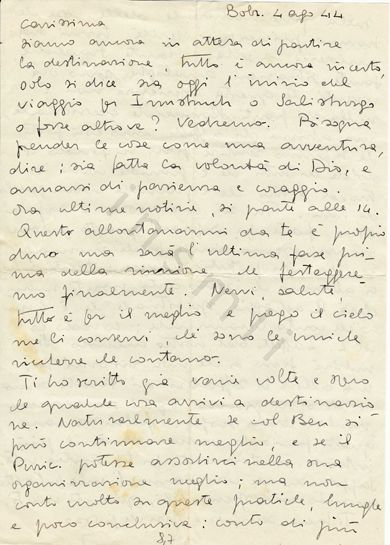 Bolz. 4 ago 44
Carissima
siamo ancora in attesa di partire
la destinazione, tutto è ancora incerto,
solo si dice sia oggi l'inizio del
viaggio per Innsbruck o Salisburgo
o forse altrove? Vedremo. Bisogna
prender le cose come una avventura,
dire; sia fatta la volontà di Dio, e
armarsi di pazienza e coraggio.
Ora ultime notizie, si parte alle 14.
Questo allontanarmi da te è proprio
duro ma sarà l'ultima fase pri-
ma della riunione che festeggere-
mo finalmente. Nervi, salute,
tutto è per il meglio e prego il cielo
me li conservi, chè sono le uniche
ricchezze che contano.
Ti ho scritto già varie volte e spero
che qualche cosa arrivi a destinazio-
ne. Naturalmente se col Ben si
può continuare meglio, e se il
Puric. potesse assorbirci nella sua
organizzazione meglio; ma non
conto molto su queste pratiche, lunghe
e poco conclusive: conto di più
87